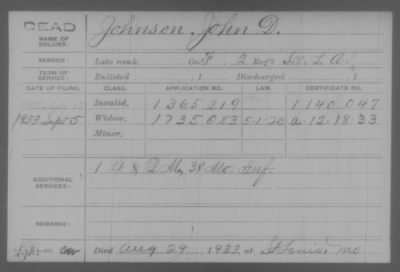 DEAD
NAME OF SOLDIER: Johnson, John D.
SERVICE: Late rank, Co. F, 2 Reg't Ill. L. A.
TERM OF SERVICE: Enlisted , 1 Discharged , 1
DATE OF FILING. CLASS. APPLICATION NO. LAW. CERTIFICATE NO.
Invalid, 1365219 1140047
1933 Sept-5 Widow, 1735083 5-1-20 a-12-18-33
Minor,
ADDITIONAL SERVICES: 1 Lt & Q M, 38 Mo. Inf.
REMARKS:
Died Aug 29, 1933, at St Louis Mo